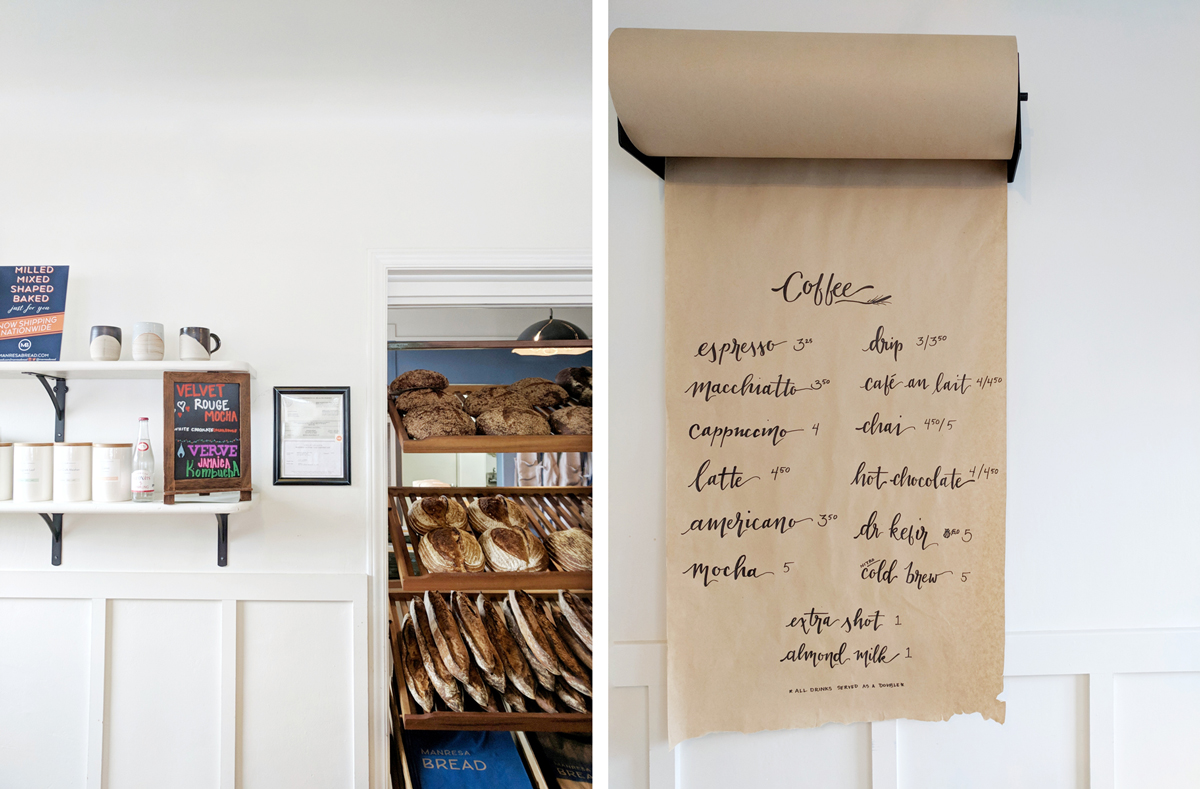 MILLED
MIXED
SHAPED
BAKED
just for you
NOW SHIPPING
NATIONWIDE
MB
MANRESABREAD.COM
VELVET
ROUGE
MOCHA
WHITE CHOCOLATE
VERVE
JAMAICA
KombuchA
MANRESA
BREAD
MANRESA
BREA
Coffee
espresso 3²⁵
macchiatto 3⁵⁰
cappuccino 4
latte 4⁵⁰
americano 3⁵⁰
mocha 5
drip 3/3⁵⁰
café au lait 4/4⁵⁰
chai 4⁵⁰/5
hot chocolate 4/4⁵⁰
dr kefir 5
nitro
cold brew 5
extra shot 1
almond milk 1
*ALL DRINKS SERVED AS A DOUBLE*